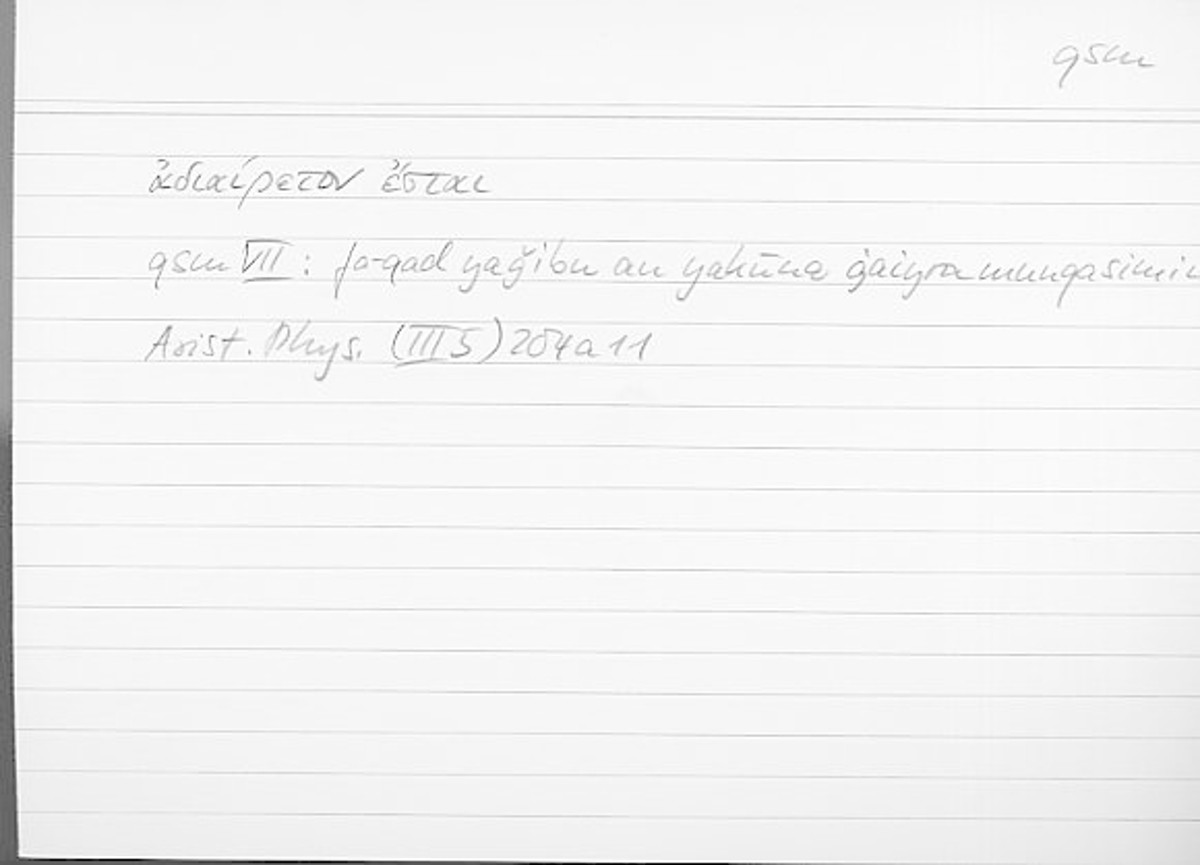 qsm
ἀδιαίρετον ἔσται
qsm VII : fa-qad yaǧibu an yakūna ġaiyra munqasimin
Arist. Phys. (III 5) 204a11